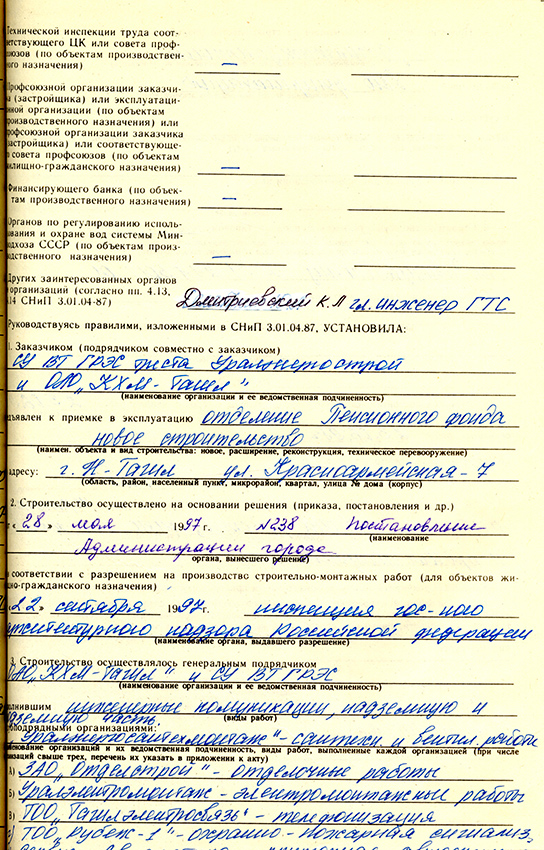 Технической инспекции труда соот-
ветствующего ЦК или совета проф-
союзов (по объектам производствен-
ного назначения) —
Профсоюзной организации заказчи-
ка (застройщика) или эксплуатаци-
онной организации (по объектам
производственного назначения) или
профсоюзной организации заказчика
(застройщика) или соответствующе-
го совета профсоюзов (по объектам
жилищно-гражданского назначения) —
Финансирующего банка (по объек-
там производственного назначения) —
Органов по регулированию исполь-
зования и охране вод системы Мин-
водхоза СССР (по объектам произ-
водственного назначения) —
Других заинтересованных органов
и организаций (согласно пп. 4.13,
4.14 СНиП 3.01.04-87) Дмитриевский К.Л гл. инженер ГТС
Руководствуясь правилами, изложенными в СНиП 3.01.04.87, УСТАНОВИЛА:
1. Заказчиком (подрядчиком совместно с заказчиком)
СУ ВТ ГРЭС треста Уралэнергострой
и ОАО „КХМ-Тагил"
(наименование организации и ее ведомственная подчиненность)
предъявлен к приемке в эксплуатацию отделение Пенсионного фонда
новое строительство
(наимен. объекта и вид строительства: новое, расширение, реконструкция, техническое перевооружение)
адресу: г. Н-Тагил ул. Красноармейская-7
(область, район, населенный пункт, микрорайон, квартал, улица № дома (корпус)
2. Строительство осуществлено на основании решения (приказа, постановления и др.)
т «28» мая 1997 г. №238 Постановление
(наименование
Администрации города
органа, вынесшего решение)
в соответствии с разрешением на производство строительно-монтажных работ (для объектов жи-
лищно-гражданского назначения)
«22» сентября 1997 г. инспекция гос-ного
архитектурного надзора Российской федерации
(наименование органа, выдавшего разрешение)
3. Строительство осуществлялось генеральным подрядчиком
ОАО„КХМ-Тагил" и СУ ВТ ГРЭС
(наименование организации и ее ведомственная подчиненность)
полнившим инженерные комуникации, надземную и
подземную часть.
(виды работ)
субподрядными организациями:
Уралэнергосантехмонтаж"- сантехн. и вентил. работы
(наименование организаций и их ведомственная подчиненность, виды работ, выполненные каждой организацией (При числе
организаций свыше трех, перечень их указать в приложении к акту)
А) ЗАО „Отделстрой" - отделочные работы
Б) Уралэлектромонтаж - электромонтажные работы
В) ТОО „Тагилэлектросвязь" - телефонизация
ТОО „Рубеж-1" - охранно-пожарная сигнализ,